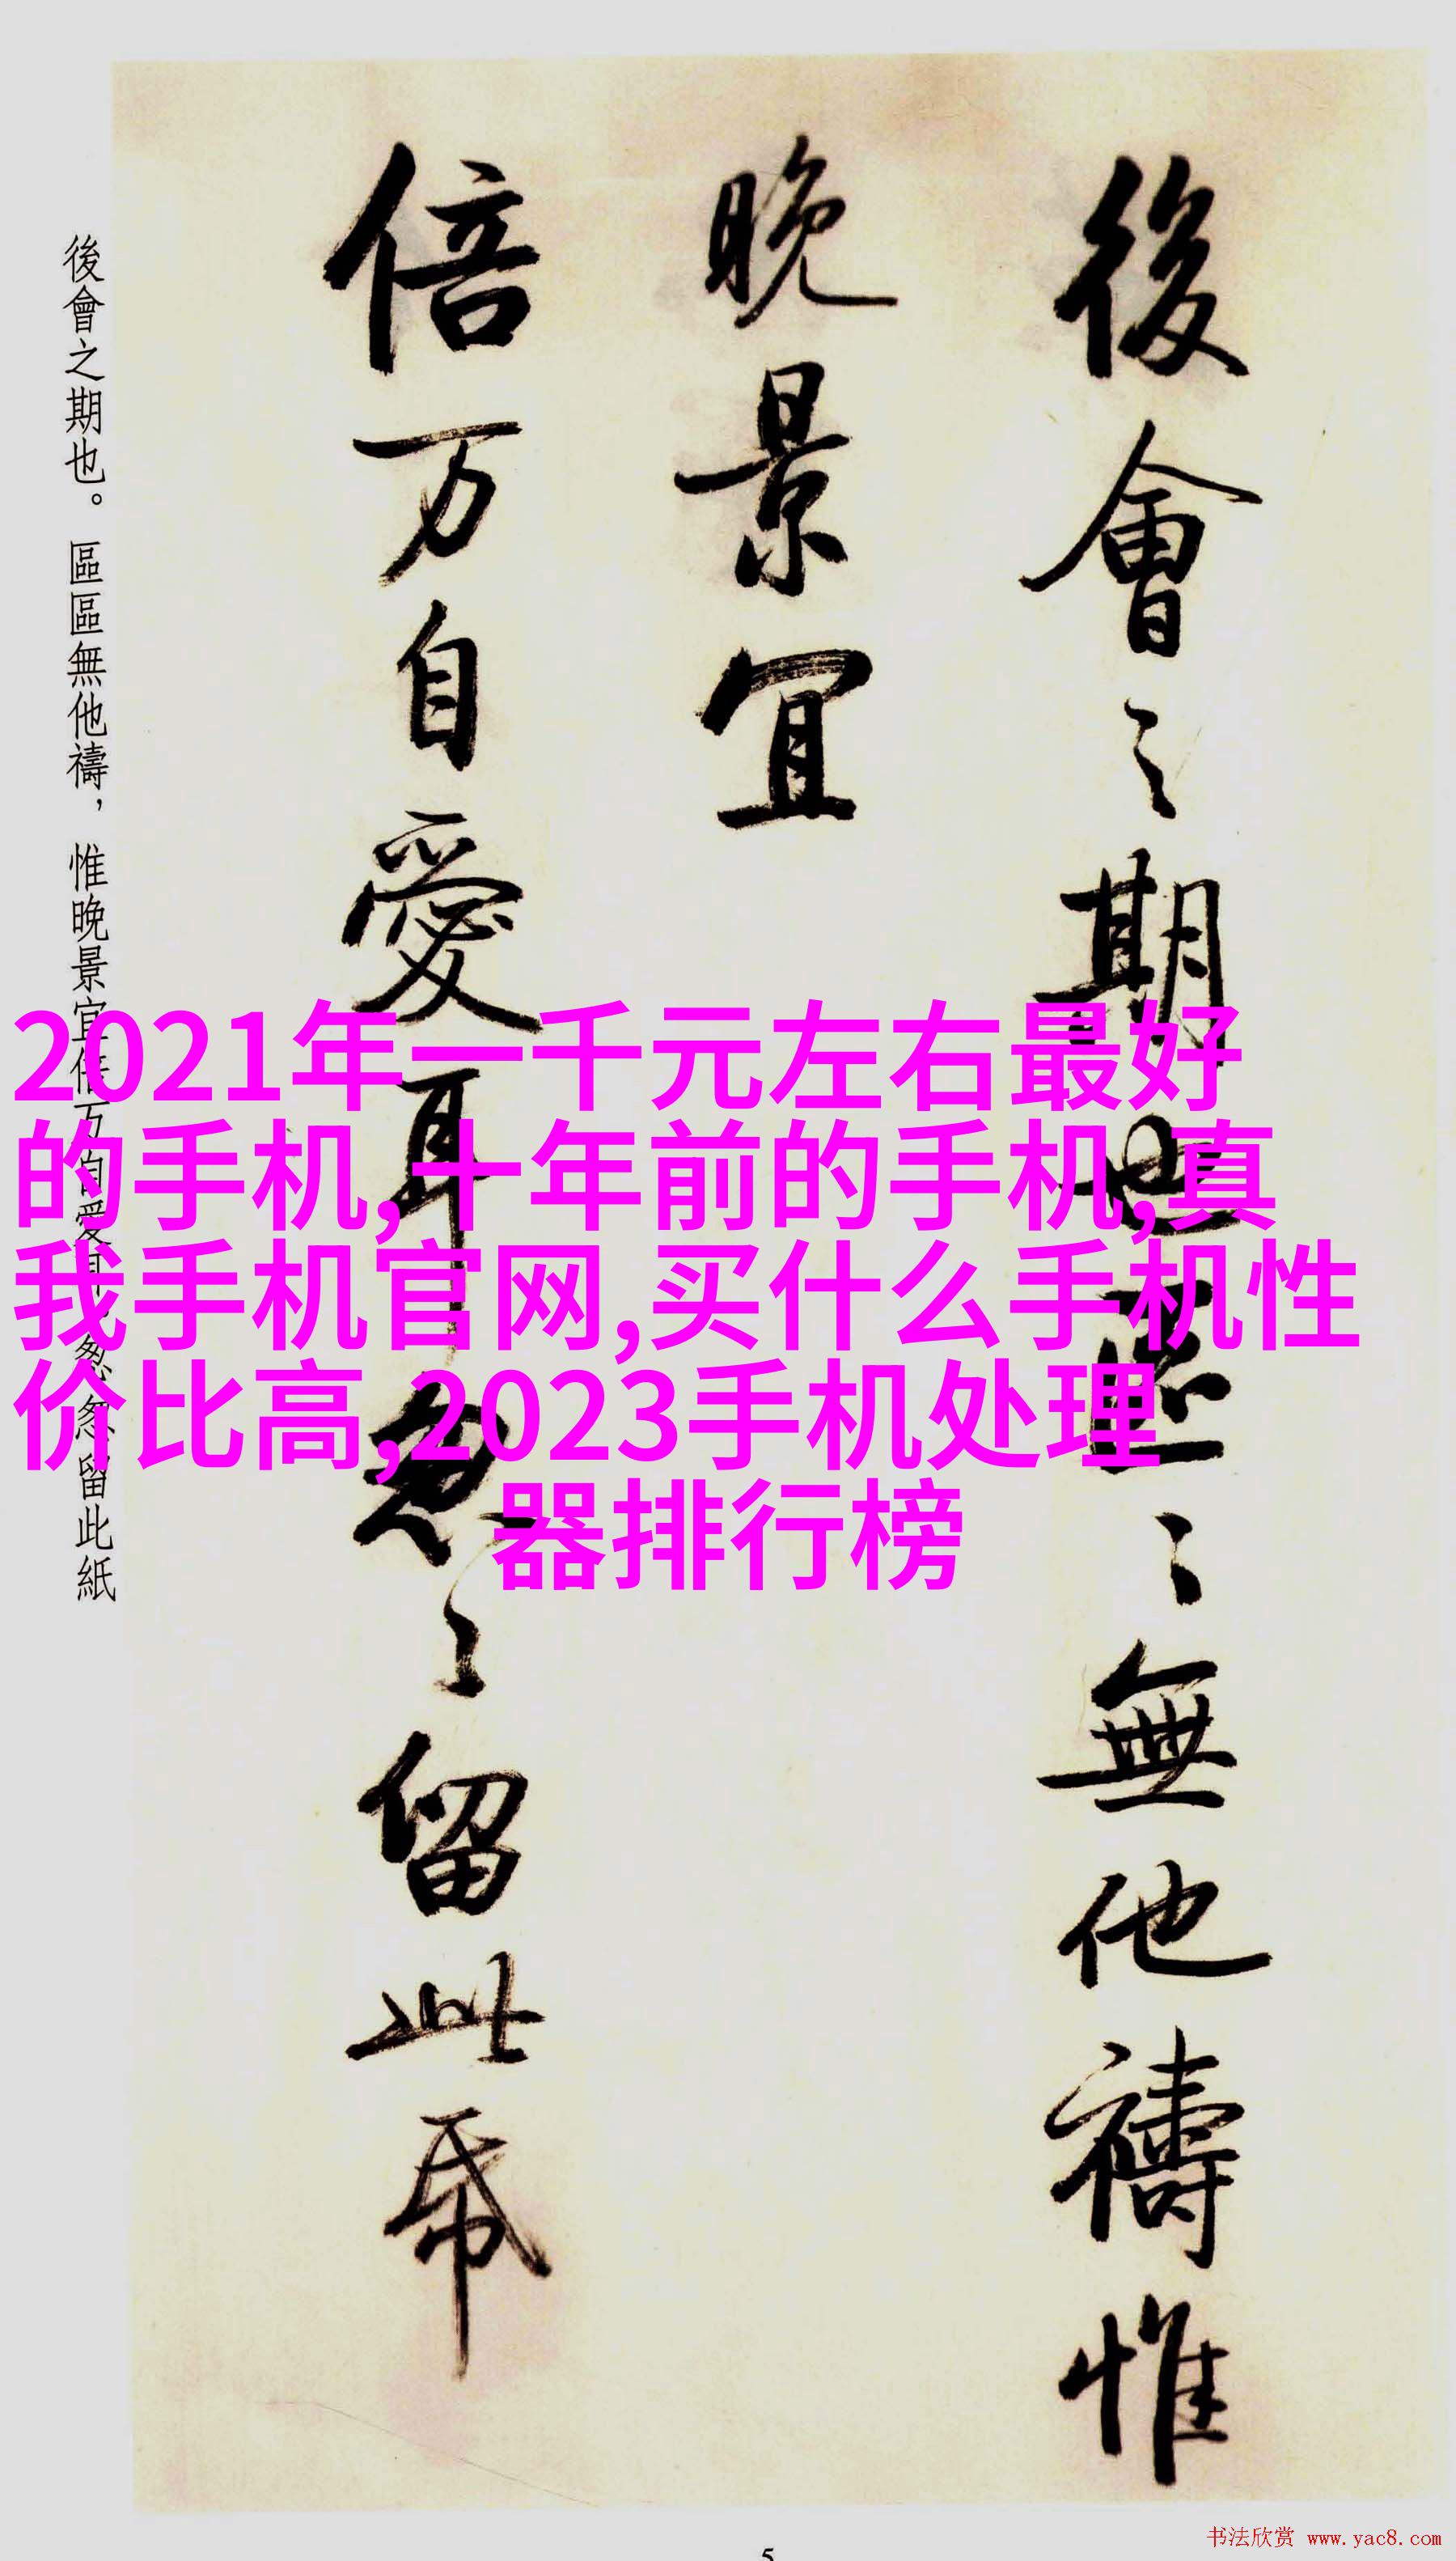 後會之期也區〻無他禱惟
晚景宜
倍万自愛耳怱〻留此帋
後會之期也。區區無他禱，惟晚景宜倍万自愛耳。怱怱留此紙
2021年一千元左右最好
的手机,十年前的手机,真
我手机官网,买什么手机性
价比高,2023手机处理
器排行榜
书法欣赏 www.yac8.com
5